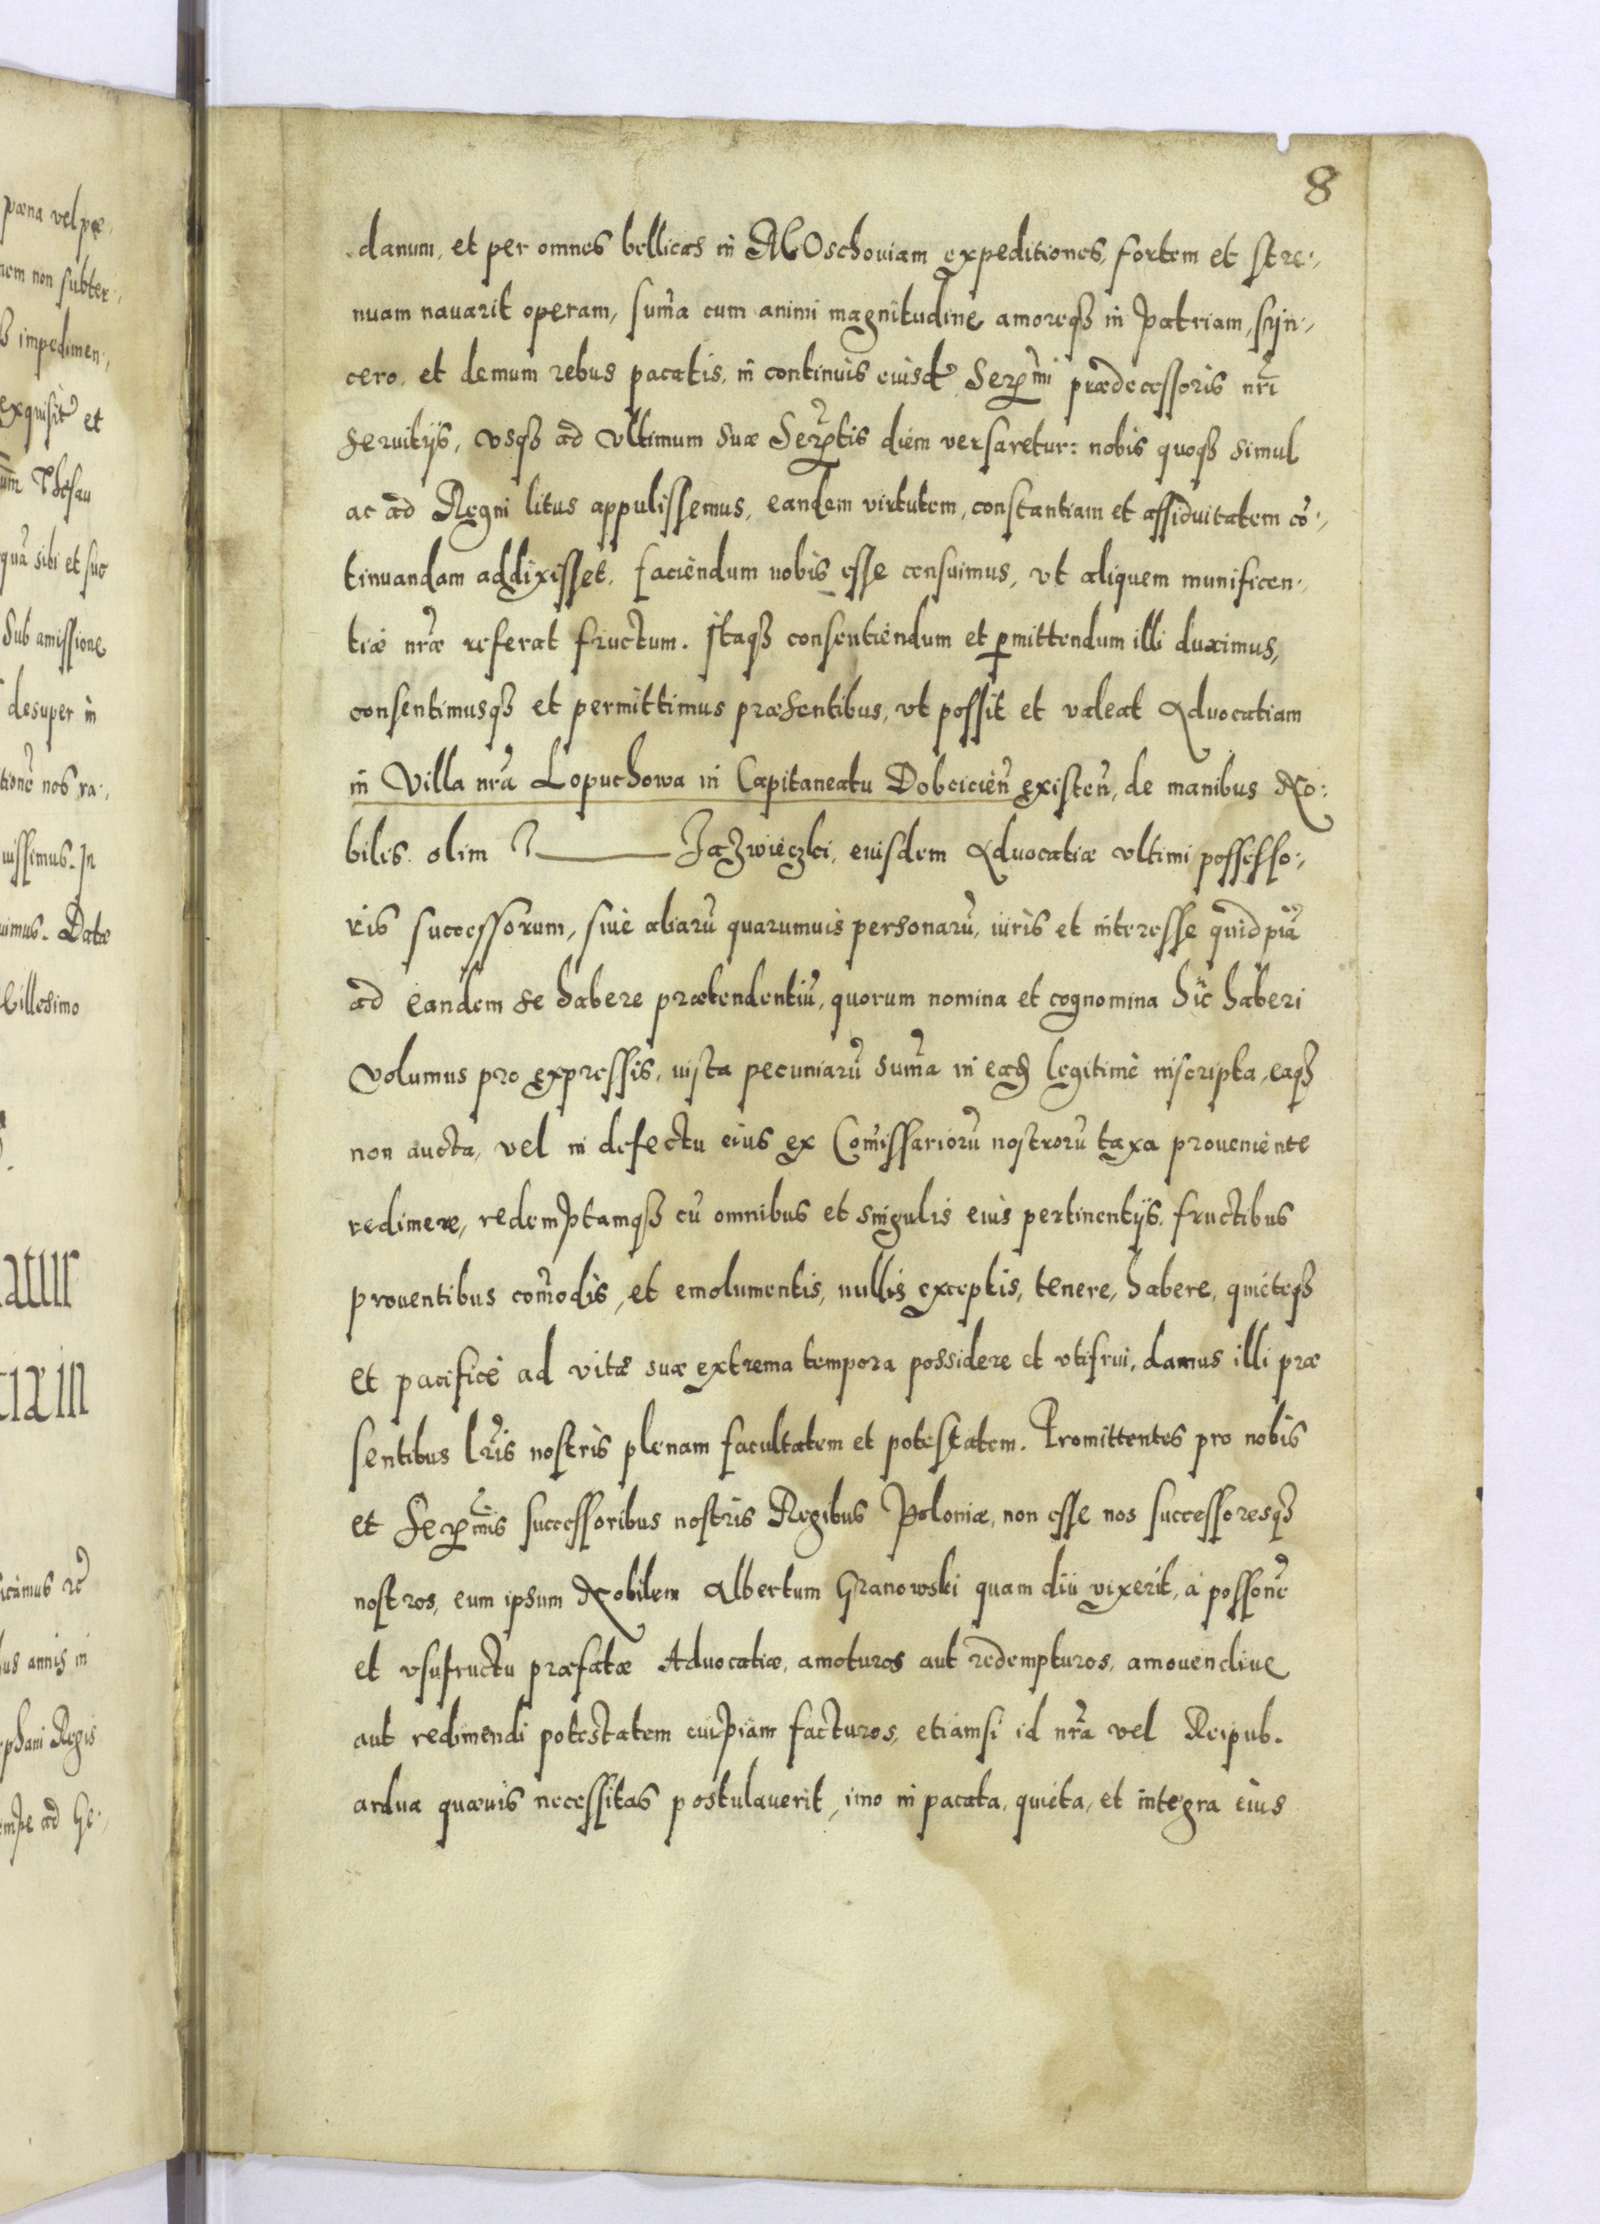 8
danum, et per omnes bellicas in MOschouiam expeditiones, fortem et stre:,
nuam nauarit operam, sum̃a cum animi magnitudine amoreqȝ in patriam, syn:,
cero, et demum rebus pacatis, in continuis euisd̃ Ser̃mi prædecessoris nr̃i
seruitijs, vsqȝ ad vltimum suæ Ser̃tis diem versaretur: nobis quoqȝ simul
ac ad Regni litus appulissemus, eandem virtutem, constantiam et assiduitatem cõ:,
tinuandam addixisset. faciendum nobis esse censuimus, vt aliquem munificen:,
tiæ nr̃æ referat fructum. Itaqȝ consentiendum et ꝑmittendum illi duximus,
consentimusqȝ et permittimus præsentibus, vt possit et valeat Aduocatiam
in Villa nr̃a Lopuchowa in Capitaneatu Dobcicien̄ existen̄, de manibus No:
bilis olim Jazwieczki, euisdem Aduocatiæ vltimi possesso:,
ris successorum, siue aliarũ quarumuis personarũ, iuris et interesse quidpiã
ad eandem se habere prætendentiũ, quorum nomina et cognomina hic haberi
volumus pro expressis, iusta pecuniarũ sum̃a in eadȝ legitimè inscripta, eaqȝ
non aucta, vel in defectu eius ex Com̃issariorũ nostrorũ taxa proueniente
redimere, redemptamqȝ cũ omnibus et singulis eius pertinentijs, fructibus
prouentibus com̃odis, et emolumentis, nullis exceptis, tenere, habere, quieteqȝ
et pacificè ad vitæ suæ extrema tempora possidere et vtifrui, damus illi præ
sentibus lr̃is nostris plenam facultatem et potestatem. Promittentes pro nobis
et Ser̃mis successoribus nostris Regibus Poloniæ, non esse nos successoresqȝ
nostros, eum ipsum Nobilem Albertum Granowski quam diu vixerit, à possonẽ
et vsufructu præfatæ Aduocatiæ, amoturos aut redempturos, amouendiue
aut redimendi potestatem cuipiam facturos, etiamsi id nr̃a vel Reipub.
ardua quæuis necessitas postulauerit, imo in pacata, quieta, et integra eius